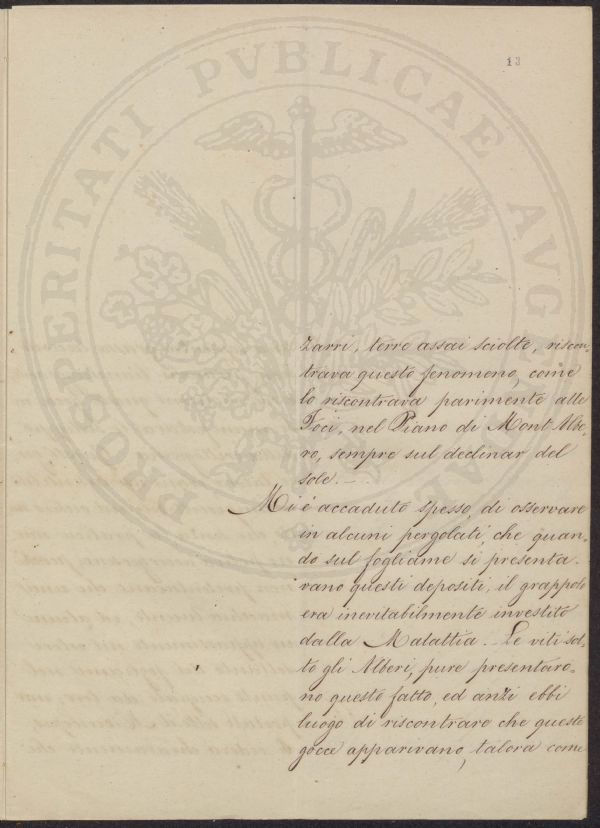 13
PROSPERITATI PVBLICAE AVGE
zarri, terre assai sciolte, riscon-
trava questo fenomeno, come
lo riscontrava parimente alle
Foci, nel Piano di Mont'Albe-
ro, sempre sul declinar del
sole. —
Mi è accaduto spesso, di osservare
in alcuni pergolati, che quan-
do sul fogliame si presenta-
vano questi depositi, il grappolo
era inevitabilmente investito
dalla Malattia. - Le viti sot-
to gli Alberi, pure presentaro-
no questo fatto, ed anzi ebbi
luogo di riscontrare che queste
gocce apparivano, talora come